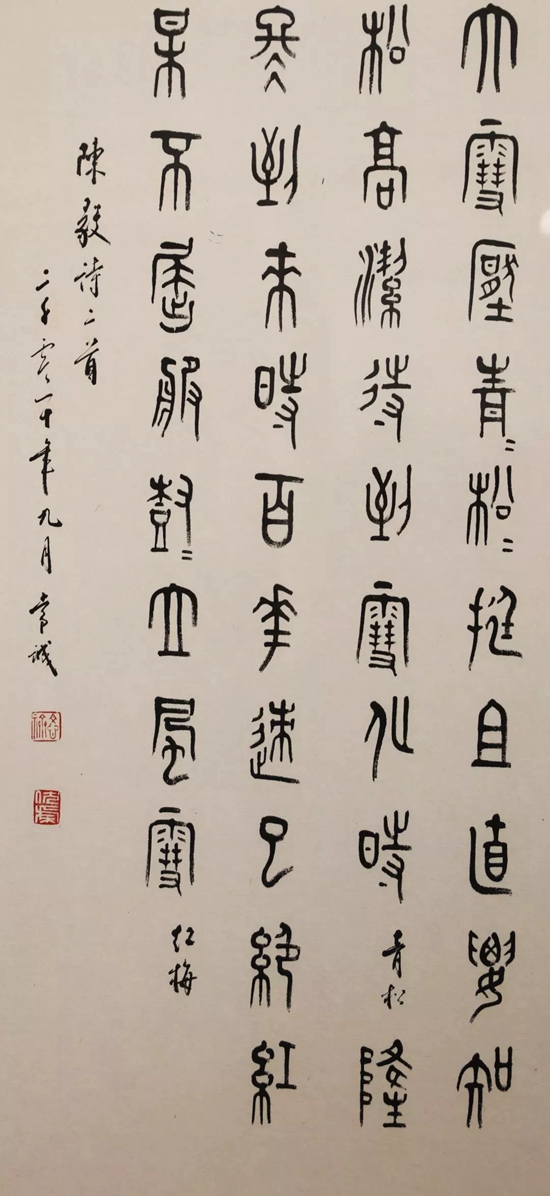 大雪壓青〻松〻挺且直要知
松高潔待到雪化時 青松 隆
冬到來時百花迹已絕紅
梅不屈服樹〻立風雪 紅梅
陳毅詩二首
二千零一十年九月 常誠